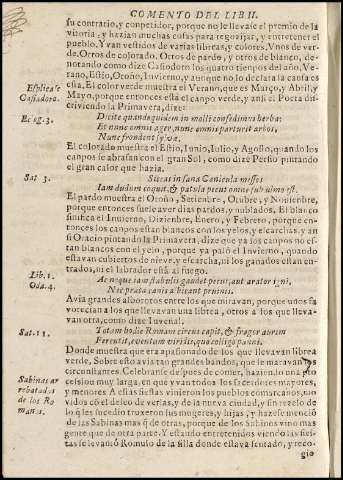 COMENTO DEL LIB II.
su contrario, y conpetidor, porque no llevase el premio de la
vitoria: y hazian muchas cosas para regozijar, y entretener el
pueblo. Y van vestidos de varias libreas, y colores. Vnos de ver-
de. Otros de colorado. Otros de pardo, y otros de blanco, de-
notando como dize Casiodoro los quatro tienpos del año, Ve-
rano, Estio, Otoño, Invierno, y aunque no lo declara la causa es
Esplica a
Casiodoro.
esta, El color verde muestra el Verano, que es Março, y Abril, y
Mayo, porque entonces està el canpo verde, y ansi el Poeta di-
ziendo la Primavera, dize:
Eclog. 3.
Dicite quandoquidem in molli consedimus herba:
Et nunc omnis ager, nunc omnis parturit arbos,
Nunc frondent sylvæ.
El colorado muestra el Estio, Iunio, Iulio, y Agosto, quando los
canpos se abrasan con el gran Sol, como dize Persio pintando
el gran calor que hazia.
Sat. 3.
Siccas insana Canicula messes
Iam dudum coquit, & patula pecus omne sub ulmo est.
El pardo muestra el Otoño, Setienbre, Otubre, y Novienbre,
porque entonces suele aver dias pardos, y nublados. El blanco
sinifica el Invierno, Dizienbre, Enero, y Febrero, porque en-
tonces los canpos estan blancos con los yelos, y escarchas, y an
si Oracio pintando la Primavera, dize que ya los canpos no es-
tan blancos con el yelo, porque ya pasò el Invierno, quando
estavan cubiertos de nieve, y escarcha, ni los ganados estan en-
trados, ni el labrador està al fuego.
Lib. 1.
Oda. 4.
Ac neque iam stabulis gaudet pecus, aut arator igni,
Nec prata canis albicant pruinis.
Avia grandes alborotos entre los que miravan, porque unos fa
vorecian a los que llevavan una librea, otros a los que lleva-
van otra, como dize Iuvenal:
Sat. 11.
Totam hodie Romam circus capit, & fragor aurem
Percutit, eventum viridis, quo colligo panni.
Donde muestra que era apasionado de los que llevavan librea
verde. Sobre esto avia tan grandes bandos, que se matavan los
circunstantes. Celebranse despues de comer, haziendo una pro
cesion muy larga, en que yvan todos los sacerdotes mayores,
y menores A estas fiestas vinieron los pueblos comarcanos, mo
Sabinas ar
rebatadas
de los Ro
manos.
vidos con el deseo de verlas, y de la nueva ciudad, y sin rezelo de
lo q̃ les sucedio truxeron sus mugeres, y hijas, y hazese mencio
de las Sabinas mas q̃ de otras, porque de los Sabinos vino mas
gente que de otra parte. Y estando entretenidos viendo las fies-
tas se levantò Romulo de la silla donde estava sentado, y reco-
gio